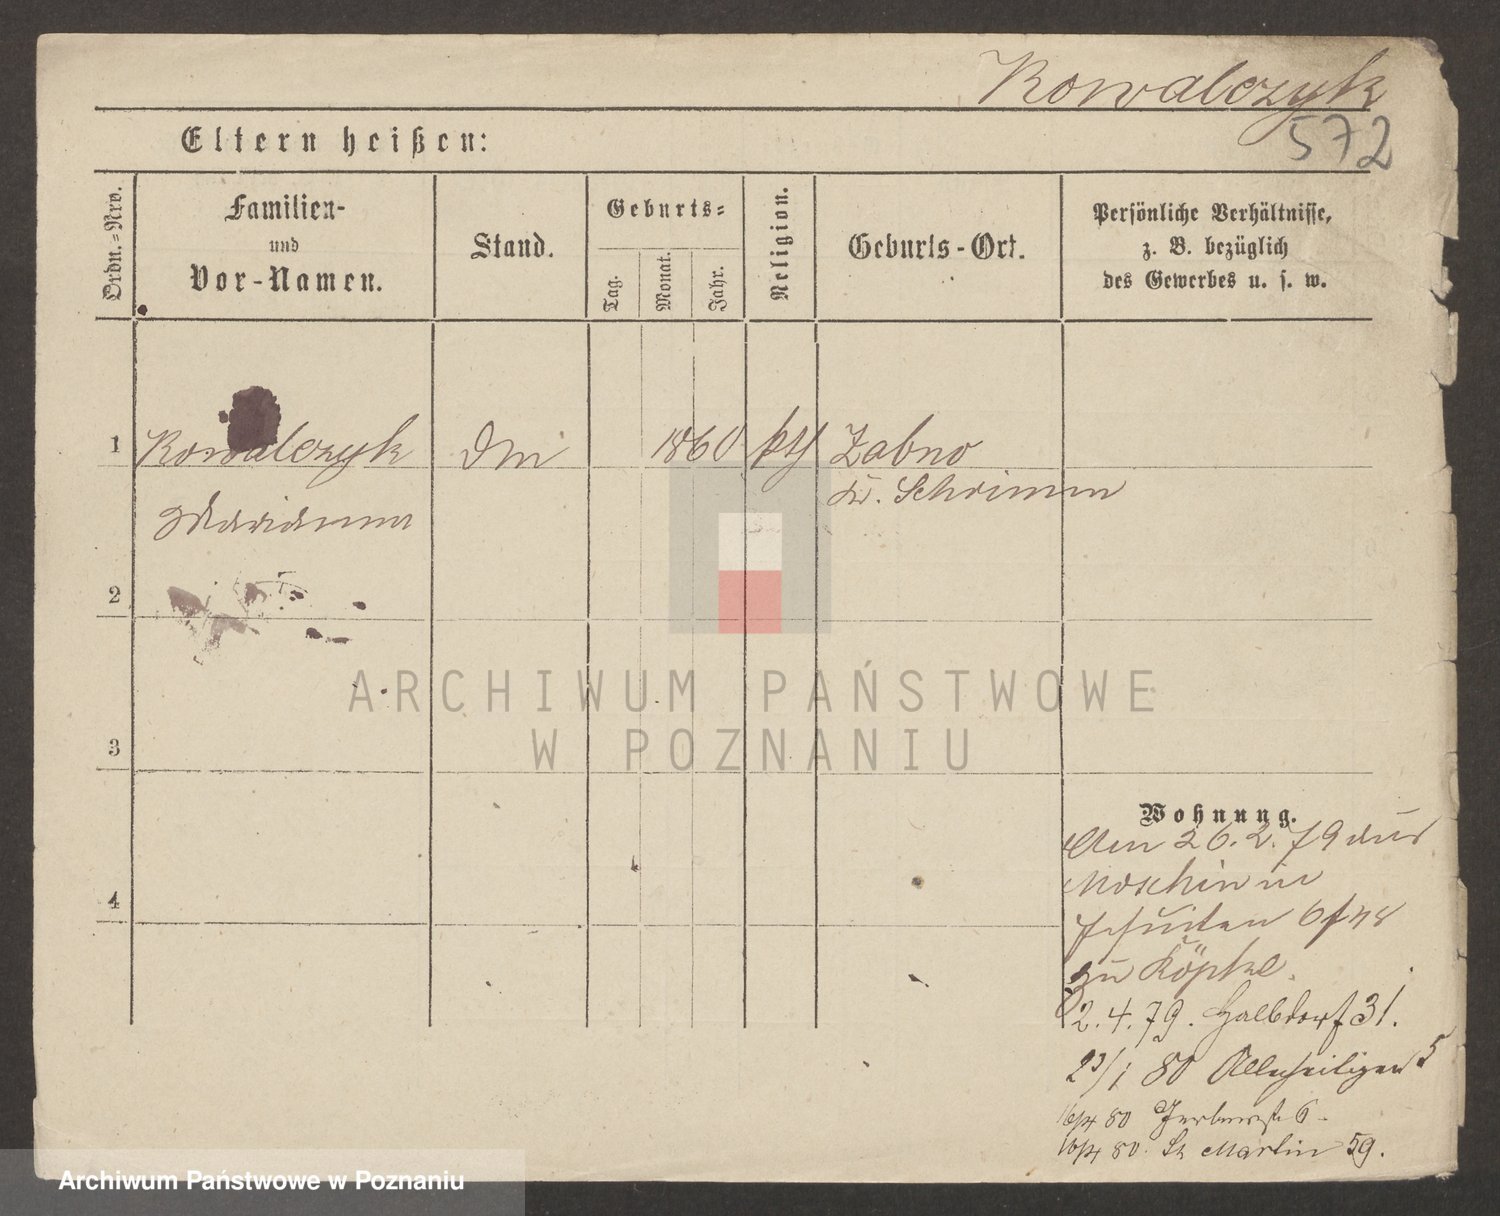 Kowalczyk
572
Eltern heißen:
Ordn.=Nro.
Familien-
und
Vor-Namen.
Stand.
Geburts=
Tag.
Monat.
Jahr.
Religion.
Geburts-Ort.
Persönliche Verhältnisse,
z. B. bezüglich
des Gewerbes u. s. w.
1
Kowalczyk
1860
kth
Zabno
Kr. Schrimm
Marianna
2
3
4
ARCHIWUM PAŃSTWOWE
W POZNANIU
Wohnung.
Am 26.2.79 aus
Moschin in
Jesuiten
zu Köpke.
2.4.79. Halbdorf 31.
23/1 80 Allerheiligen 5
16/4 80 6
16/4 80. St Martin 59.
Archiwum Państwowe w Poznaniu